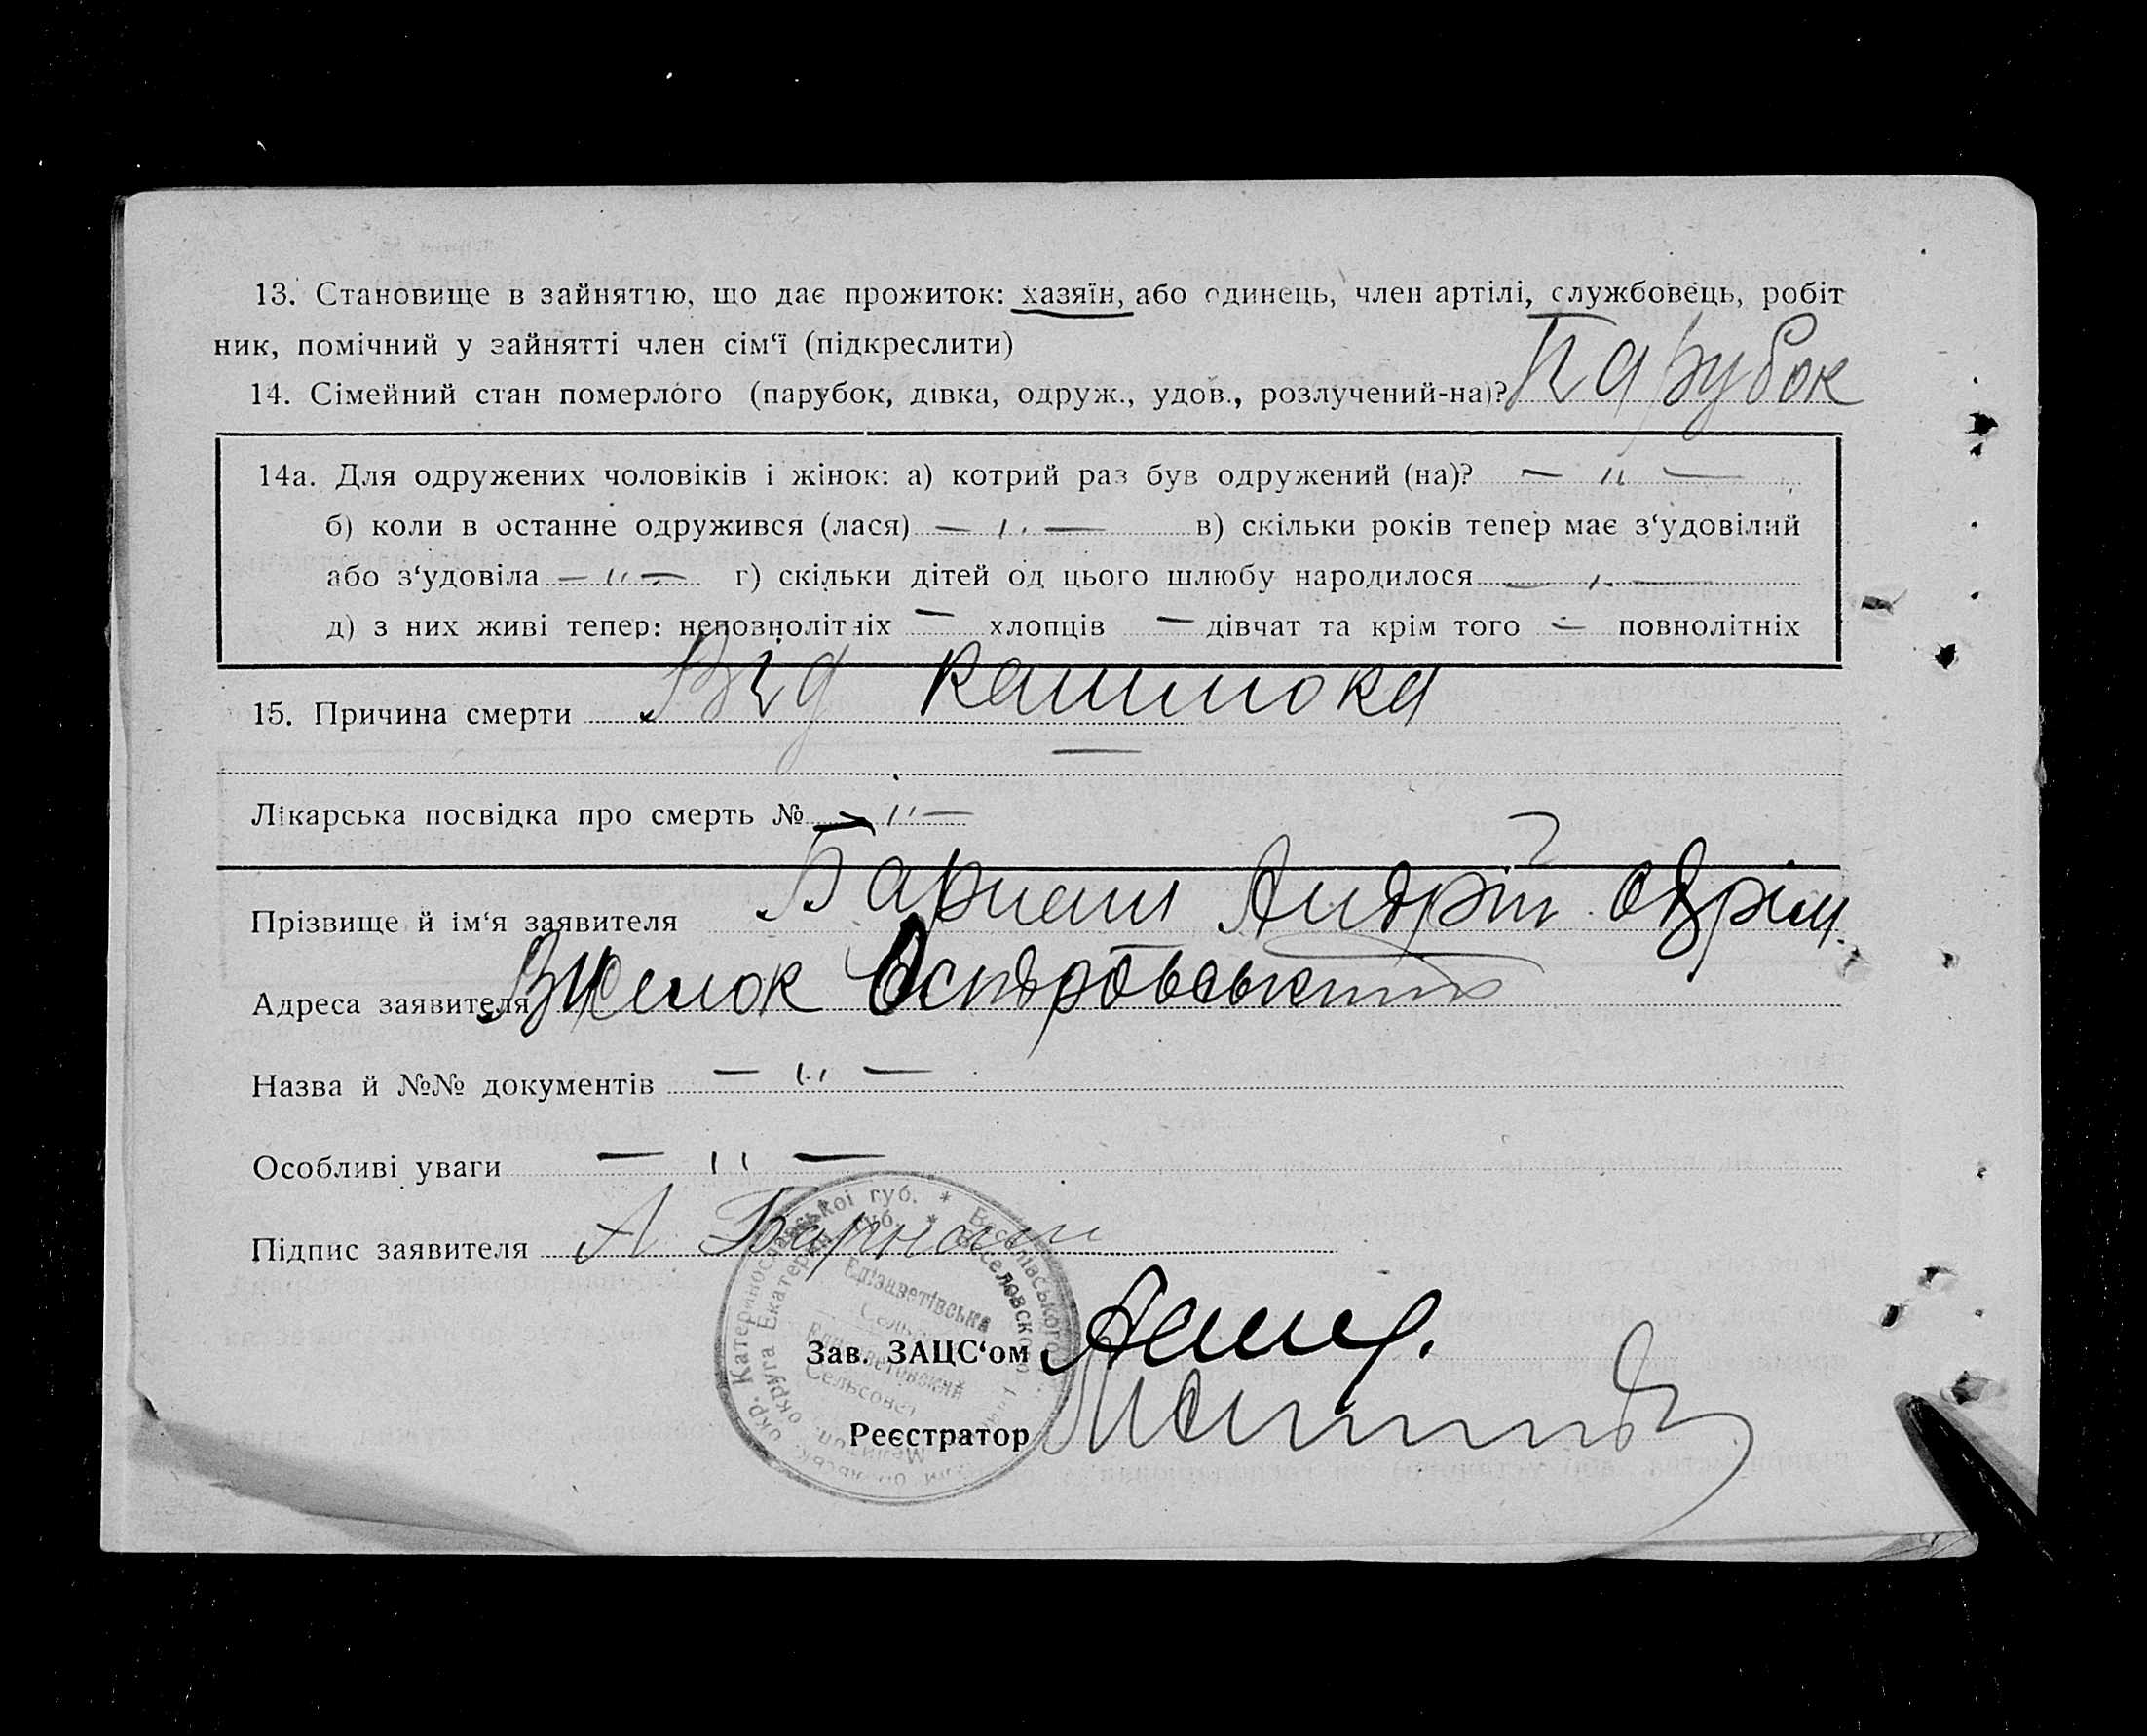 13. Становище в зайняттю, що дає прожиток: хазяїн, або одинець, член артілі, службовець, робіт
ник, помічний у зайнятті член сім‘ї (підкреслити)
14. Сімейний стан померлого (парубок, дівка, одруж., удов., розлучений-на)? Парубок
14а. Для одружених чоловіків і жінок: а) котрий раз був одружений (на)? — " —
б) коли в останнє одружився (лася) — " — в) скільки років тепер має з‘удовілий
або з‘удовіла — " — г) скільки дітей од цього шлюбу народилося — " —
д) з них живі тепер: неповнолітніх — хлопців — дівчат та крім того — повнолітніх
15. Причина смерти Від кашлюка
Лікарська посвідка про смерть № — " —
Прізвище й ім‘я заявителя Андрій
Адреса заявителя Виселок Островський
Назва й №№ документів — " —
Особливі уваги — " —
Підпис заявителя А
Катеринославської губ. * Веселівського
Екатерин. губ. * Веселовского
Єлізаветівська
Сельсовет
Зав. ЗАЦС‘ом
Реєстратор